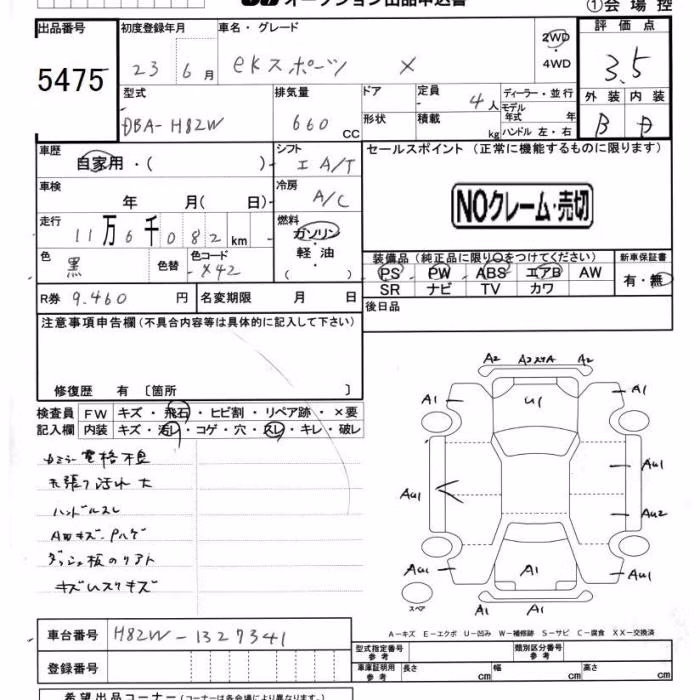 オークション出品申込書
①会場控
出品番号 初度登録年月 車名・グレード 評価点
5475 23 6月 eKスポーツ X 2WD 3.5
4WD
型式 排気量 ドア 定員 ディーラー・並行 外装 内装
DBA-H82W 660CC 形状 積載 4人 モデル年式 年 B
kg ハンドル 左・右
車歴 シフト セールスポイント(正常に機能するものに限ります)
自家用・( ) I A/T
車検 冷房
年 月( 日) A/C NOクレーム・売切
走行 燃料
11万6千082km ガソリン
軽油
( )
色 色替 色コード 装備品(純正品に限り○をつけてください) 新車保証書
黒 X42 PS PW ABS エアB AW 有・無
SR ナビ TV カワ
R券 9,460円 名変期限 月 日 後日品
注意事項申告欄(不具合内容等は具体的に記入して下さい)
修復歴 有 〔箇所 〕
検査員 FW キズ・飛石・ヒビ割・リペア跡・×要
記入欄 内装 キズ・汚レ・コゲ・穴・スレ・キレ・破レ
電格不良
天張り汚れ大
ハンドルスレ
キズ・ハゲ
キズ
A2 A2 A2
A1 U1 A1
AU1
AU1
AU2
AU1 A1 AU1
A1 A1
スペア
A-キズ E-エクボ U-凹み W-補修跡 S-サビ C-腐食 XX-交換済
車台番号 H82W-1327341
登録番号
型式指定番号 参考 類別区分番号 参考
車庫証明用 参考 長さ cm 幅 cm 高さ cm
希望出品コーナー(コーナーは各会場により異なります。)